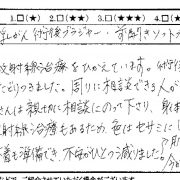 1.□(★) 2.□(★★) 3.□(★★★) 4.□(★
乳がん 術後ブラジャー・前開きソフト
放射線治療をひかえています。術後
たどりつきました。周りに相談できる人が
さんは親切に相談にのって下さり、
射線治療もあるため、色はセサミに
着も準備でき、不安がひとつ減りました。